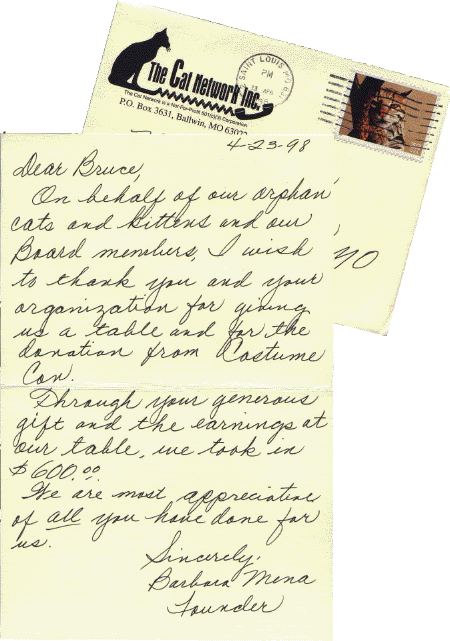 The Cat Network Inc.
The Cat Network is a Not-For-Profit 501(c)(3) Corporation
P.O. Box 3631, Ballwin, MO 63022
SAINT LOUIS MO
PM
APR
4-23-98
Dear Bruce,
On behalf of our orphan
cats and kittens and our
Board members, I wish
to thank you and your
organization for giving
us a table and for the
donation from Costume
Con.
Through your generous
gift and the earnings at
our table, we took in
$600.00.
We are most appreciative
of all you have done for
us.
Sincerely,
Barbara Mena
Founder